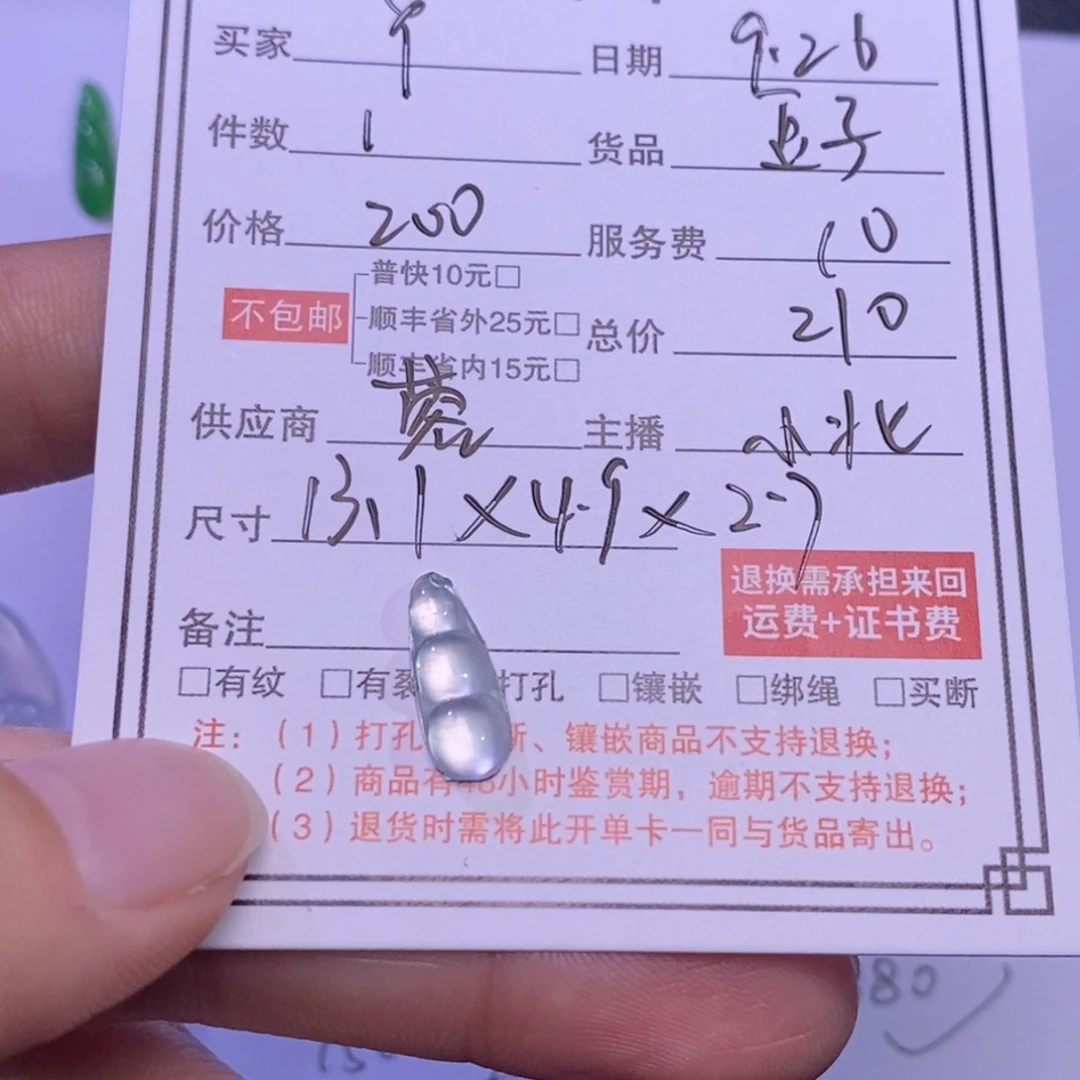 买家 日期 9.26
件数 1 货品 豆子
价格 200 服务费 10
普快10元□
不包邮 顺丰省外25元□ 总价 210
顺丰省内15元□
供应商 主播 小北
尺寸 13.1×4.9×2.7
退换需承担来回
运费+证书费
备注
□有纹 □有裂 打孔 □镶嵌 □绑绳 □买断
注：（1）打孔 断、镶嵌商品不支持退换；
（2）商品有48小时鉴赏期，逾期不支持退换；
（3）退货时需将此开单卡一同与货品寄出。